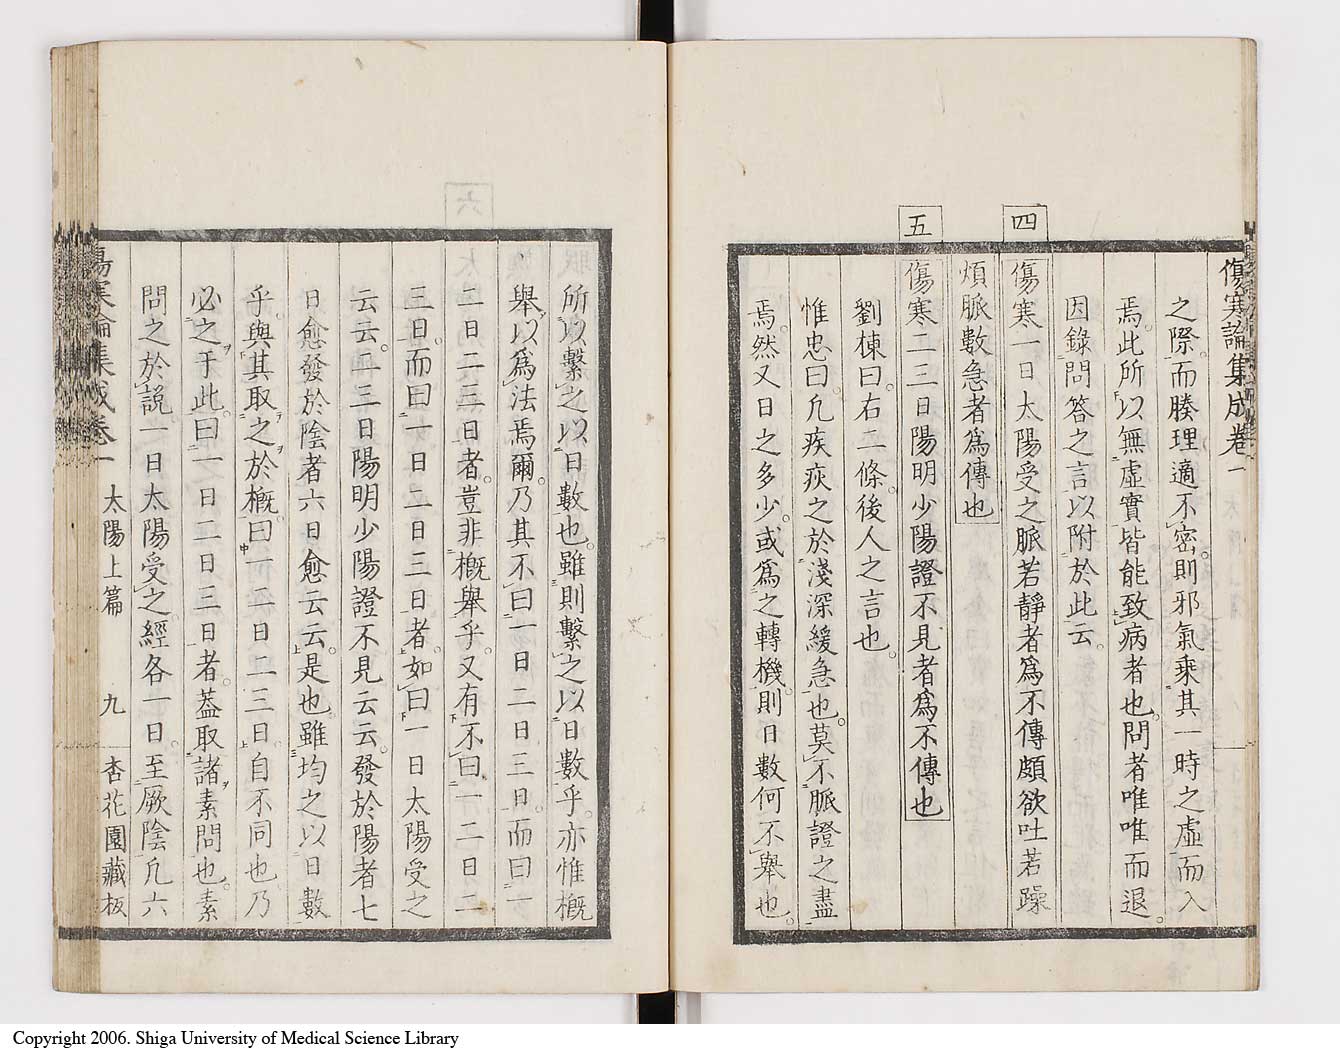 傷寒論集成卷一
之際。而腠理適不密。則邪氣乘其一時之虛而入
焉。此所以無虛實皆能致病者也。問者唯唯而退。
因錄問答之言以附於此云。
四
傷寒一日太陽受之脈若靜者爲不傳頗欲吐若躁
煩脈數急者爲傳也
五
傷寒二三日陽明少陽證不見者爲不傳也
劉棟曰。右二條。後人之言也。
惟忠曰。凡疾疢之於淺深緩急也。莫不脈證之盡
焉。然又日之多少。或爲之轉機。則日數何不舉也。
所以繫之以日數也。雖則繫之以日數乎。亦惟概
舉以爲法焉爾。乃其不曰一日二日三日。而曰一
二日二三日者。豈非概舉乎。又有不曰一二日二
三日。而曰一日二日三日者。如曰一日太陽受之
云云。二三日陽明少陽證不見云云。發於陽者七
日愈發於陰者六日愈云云。是也。雖均之以日數
乎。與其取之於概。曰一二日二三日。自不同也。乃
必之于此。曰一日二日三日者。蓋取諸素問也。素
問之於說。一日太陽受之。經各一日。至厥陰凡六
傷寒論集成卷一 太陽上篇 九 杏花園藏板
六
Copyright 2006. Shiga University of Medical Science Library